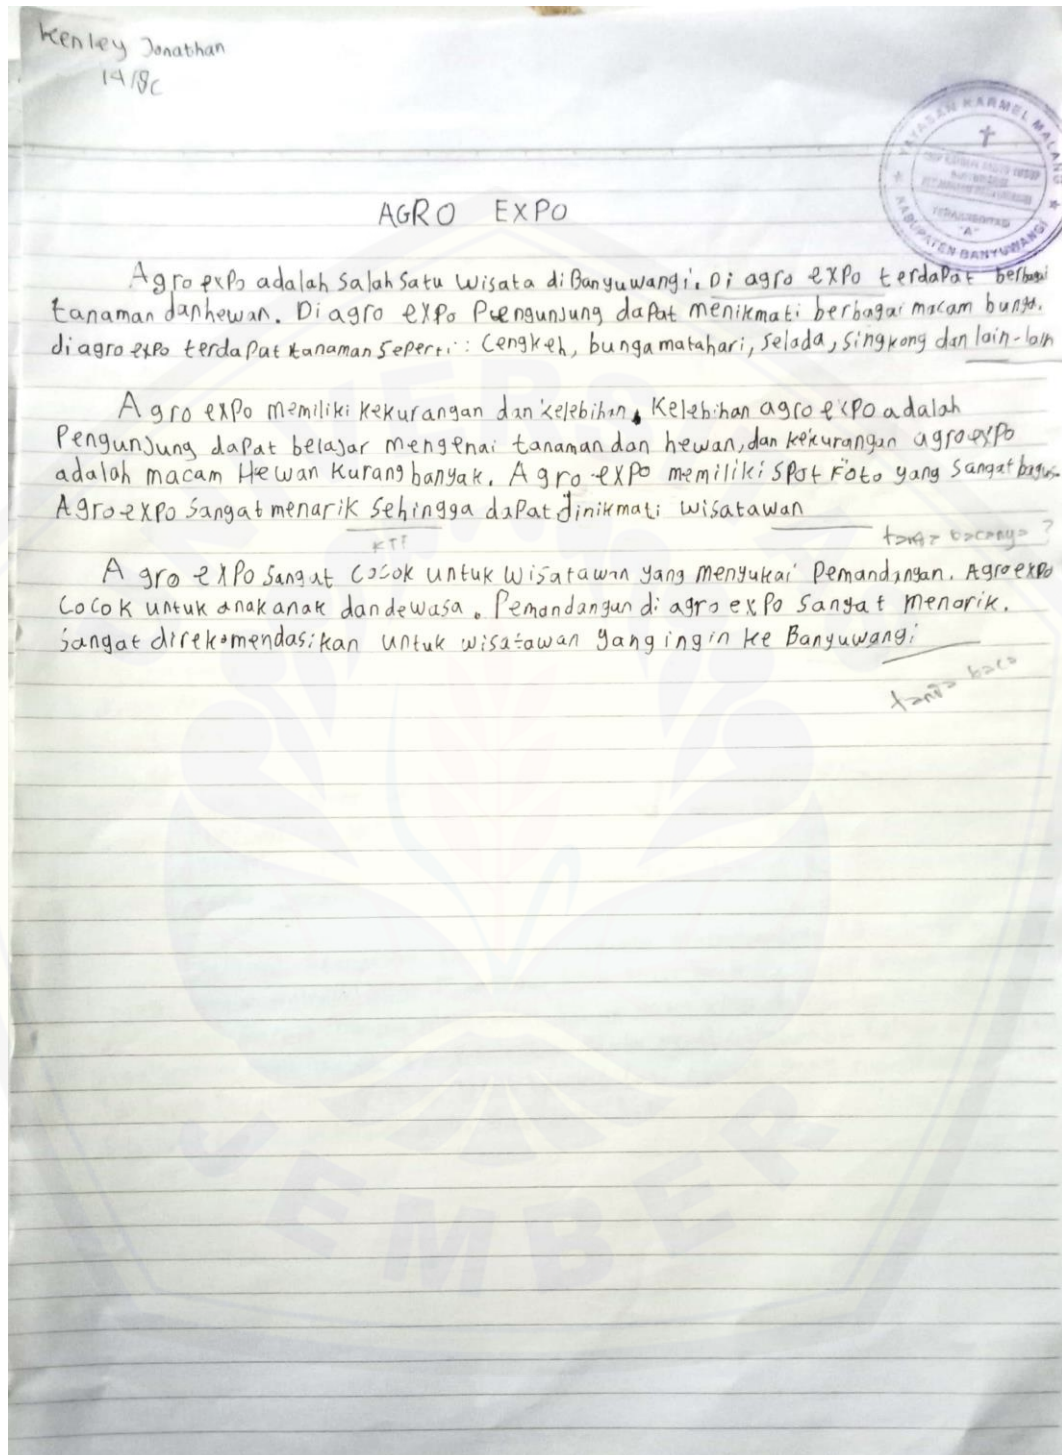 Kenley Jonathan
14/8c
YAYASAN KARMEL MALANG
TERAKREDITASI
"A"
KABUPATEN BANYUWANGI
AGRO EXPO
Agro expo adalah salah satu wisata di Banyuwangi. Di agro expo terdapat berbagai
tanaman dan hewan. Di agro expo Pengunjung dapat menikmati berbagai macam bunga.
di agro expo terdapat tanaman seperti : Cengkeh, bunga matahari, selada, singkong dan lain-lain
Agro expo memiliki kekurangan dan kelebihan. Kelebihan agro expo adalah
Pengunjung dapat belajar mengenai tanaman dan hewan, dan kekurangan agro expo
adalah macam Hewan kurang banyak. Agro expo memiliki spot Foto yang sangat bagus.
Agro expo sangat menarik sehingga dapat dinikmati wisatawan
tanda bacanya ?
Agro expo sangat cocok untuk wisatawan yang menyukai Pemandangan. Agro expo
cocok untuk anak anak dan dewasa. Pemandangan di agro expo sangat menarik.
sangat direkomendasikan untuk wisatawan yang ingin ke Banyuwangi
tanda baca
JEMBER